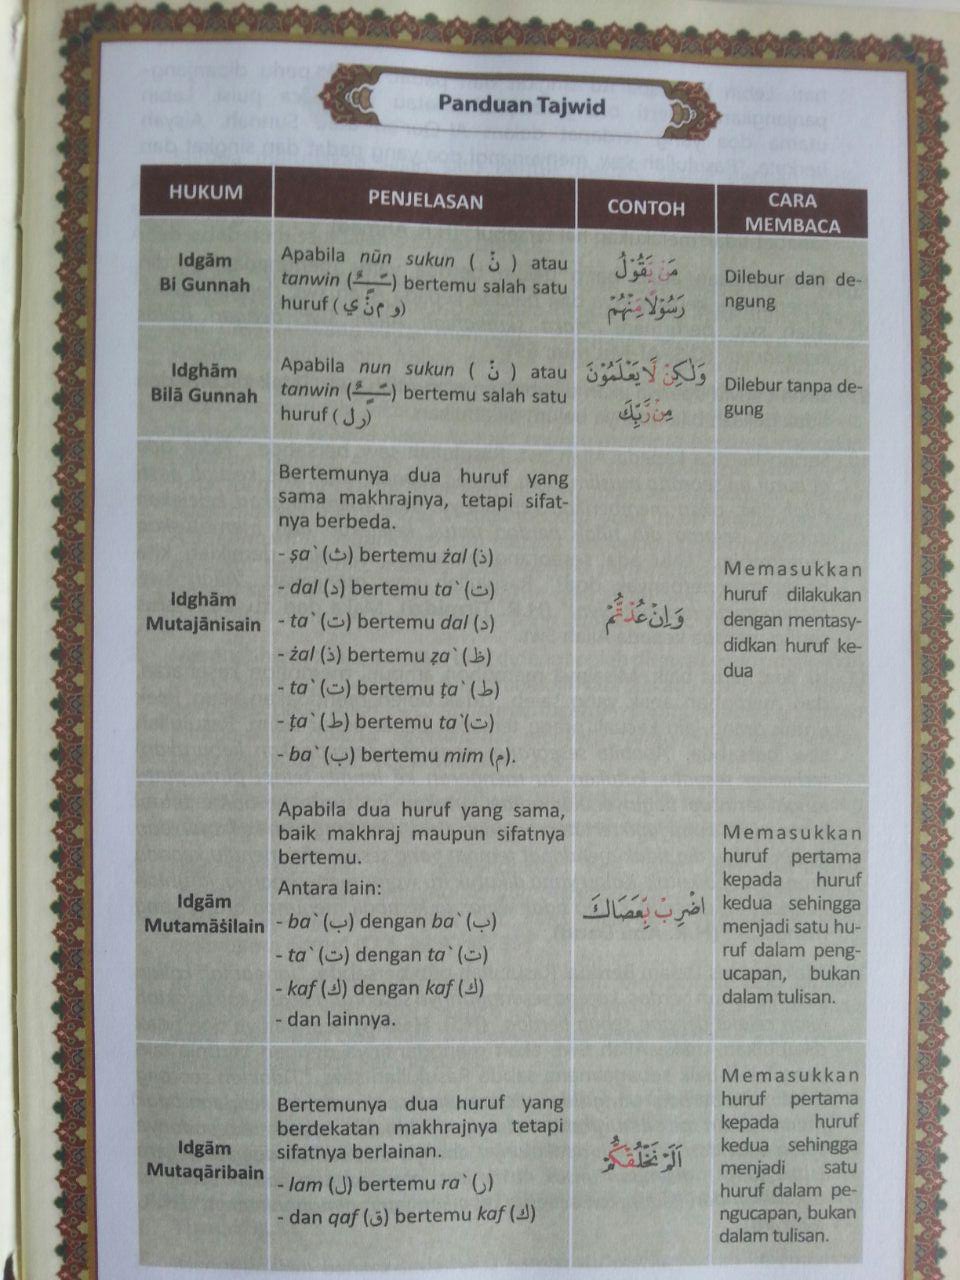 Panduan Tajwid
HUKUM
PENJELASAN
CONTOH
CARA
MEMBACA
Idgām
Bi Gunnah
Apabila nūn sukun ( نْ ) atau
tanwin (ـًـٍـٌ) bertemu salah satu
huruf ( و م ن ي)
مَنْ يَّقُوْلُ
رَسُوْلًا مِّنْهُمْ
Dilebur dan de-
ngung
Idghām
Bilā Gunnah
Apabila nun sukun ( نْ ) atau
tanwin (ـًـٍـٌ) bertemu salah satu
huruf ( ر ل)
وَلٰكِنْ لَّا يَعْلَمُوْنَ
مِنْ رَّبِّكَ
Dilebur tanpa de-
gung
Idghām
Mutajānisain
Bertemunya dua huruf yang
sama makhrajnya, tetapi sifat-
nya berbeda.
- ṣa` (ث) bertemu żal (ذ)
- dal (د) bertemu ta` (ت)
- ta` (ت) bertemu dal (د)
- żal (ذ) bertemu ẓa` (ظ)
- ta` (ت) bertemu ṭa` (ط)
- ṭa` (ط) bertemu ta`(ت)
- ba` (ب) bertemu mim (م).
وَاِنْ عُدْتُّمْ
Memasukkan
huruf dilakukan
dengan mentasy-
didkan huruf ke-
dua
Idgām
Mutamāṡilain
Apabila dua huruf yang sama,
baik makhraj maupun sifatnya
bertemu.
Antara lain:
- ba` (ب) dengan ba` (ب)
- ta` (ت) dengan ta` (ت)
- kaf (ك) dengan kaf (ك)
- dan lainnya.
اضْرِبْ بِّعَصَاكَ
Memasukkan
huruf pertama
kepada huruf
kedua sehingga
menjadi satu hu-
ruf dalam peng-
ucapan, bukan
dalam tulisan.
Idgām
Mutaqāribain
Bertemunya dua huruf yang
berdekatan makhrajnya tetapi
sifatnya berlainan.
- lam (ل) bertemu ra` (ر)
- dan qaf (ق) bertemu kaf (ك)
اَلَمْ نَخْلُقْكُّمْ
Memasukkan
huruf pertama
kepada huruf
kedua sehingga
menjadi satu
huruf dalam pe-
ngucapan, bukan
dalam tulisan.